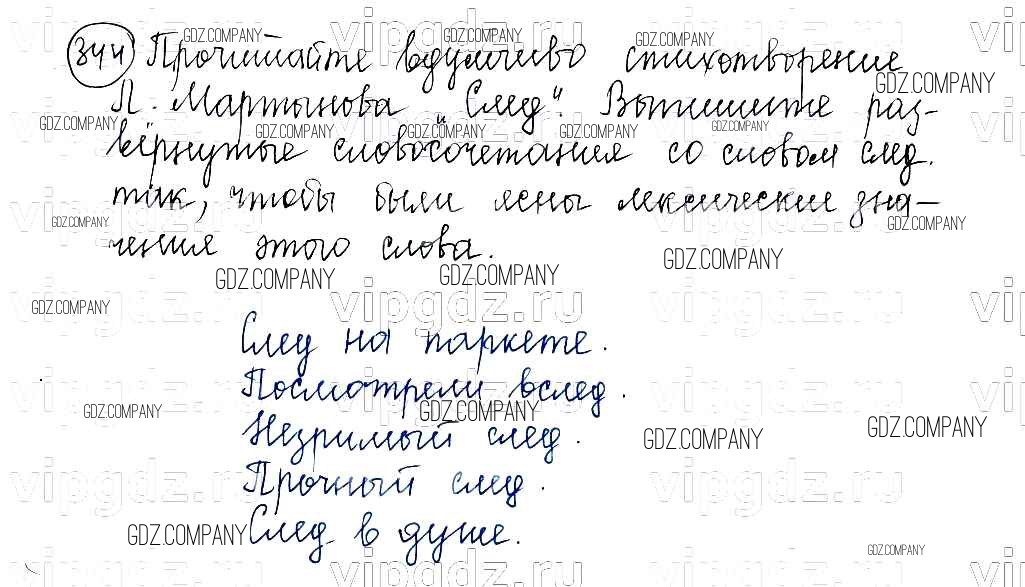 344 Прочитайте вдумчиво стихотворение
Л. Мартынова „След". Выпишите раз-
вёрнутые словосочетания со словом след.
так, чтобы были ясны лексические зна-
чения этого слова.
След на паркете.
Посмотрели вслед.
Незримый след.
Прочный след.
След в душе.